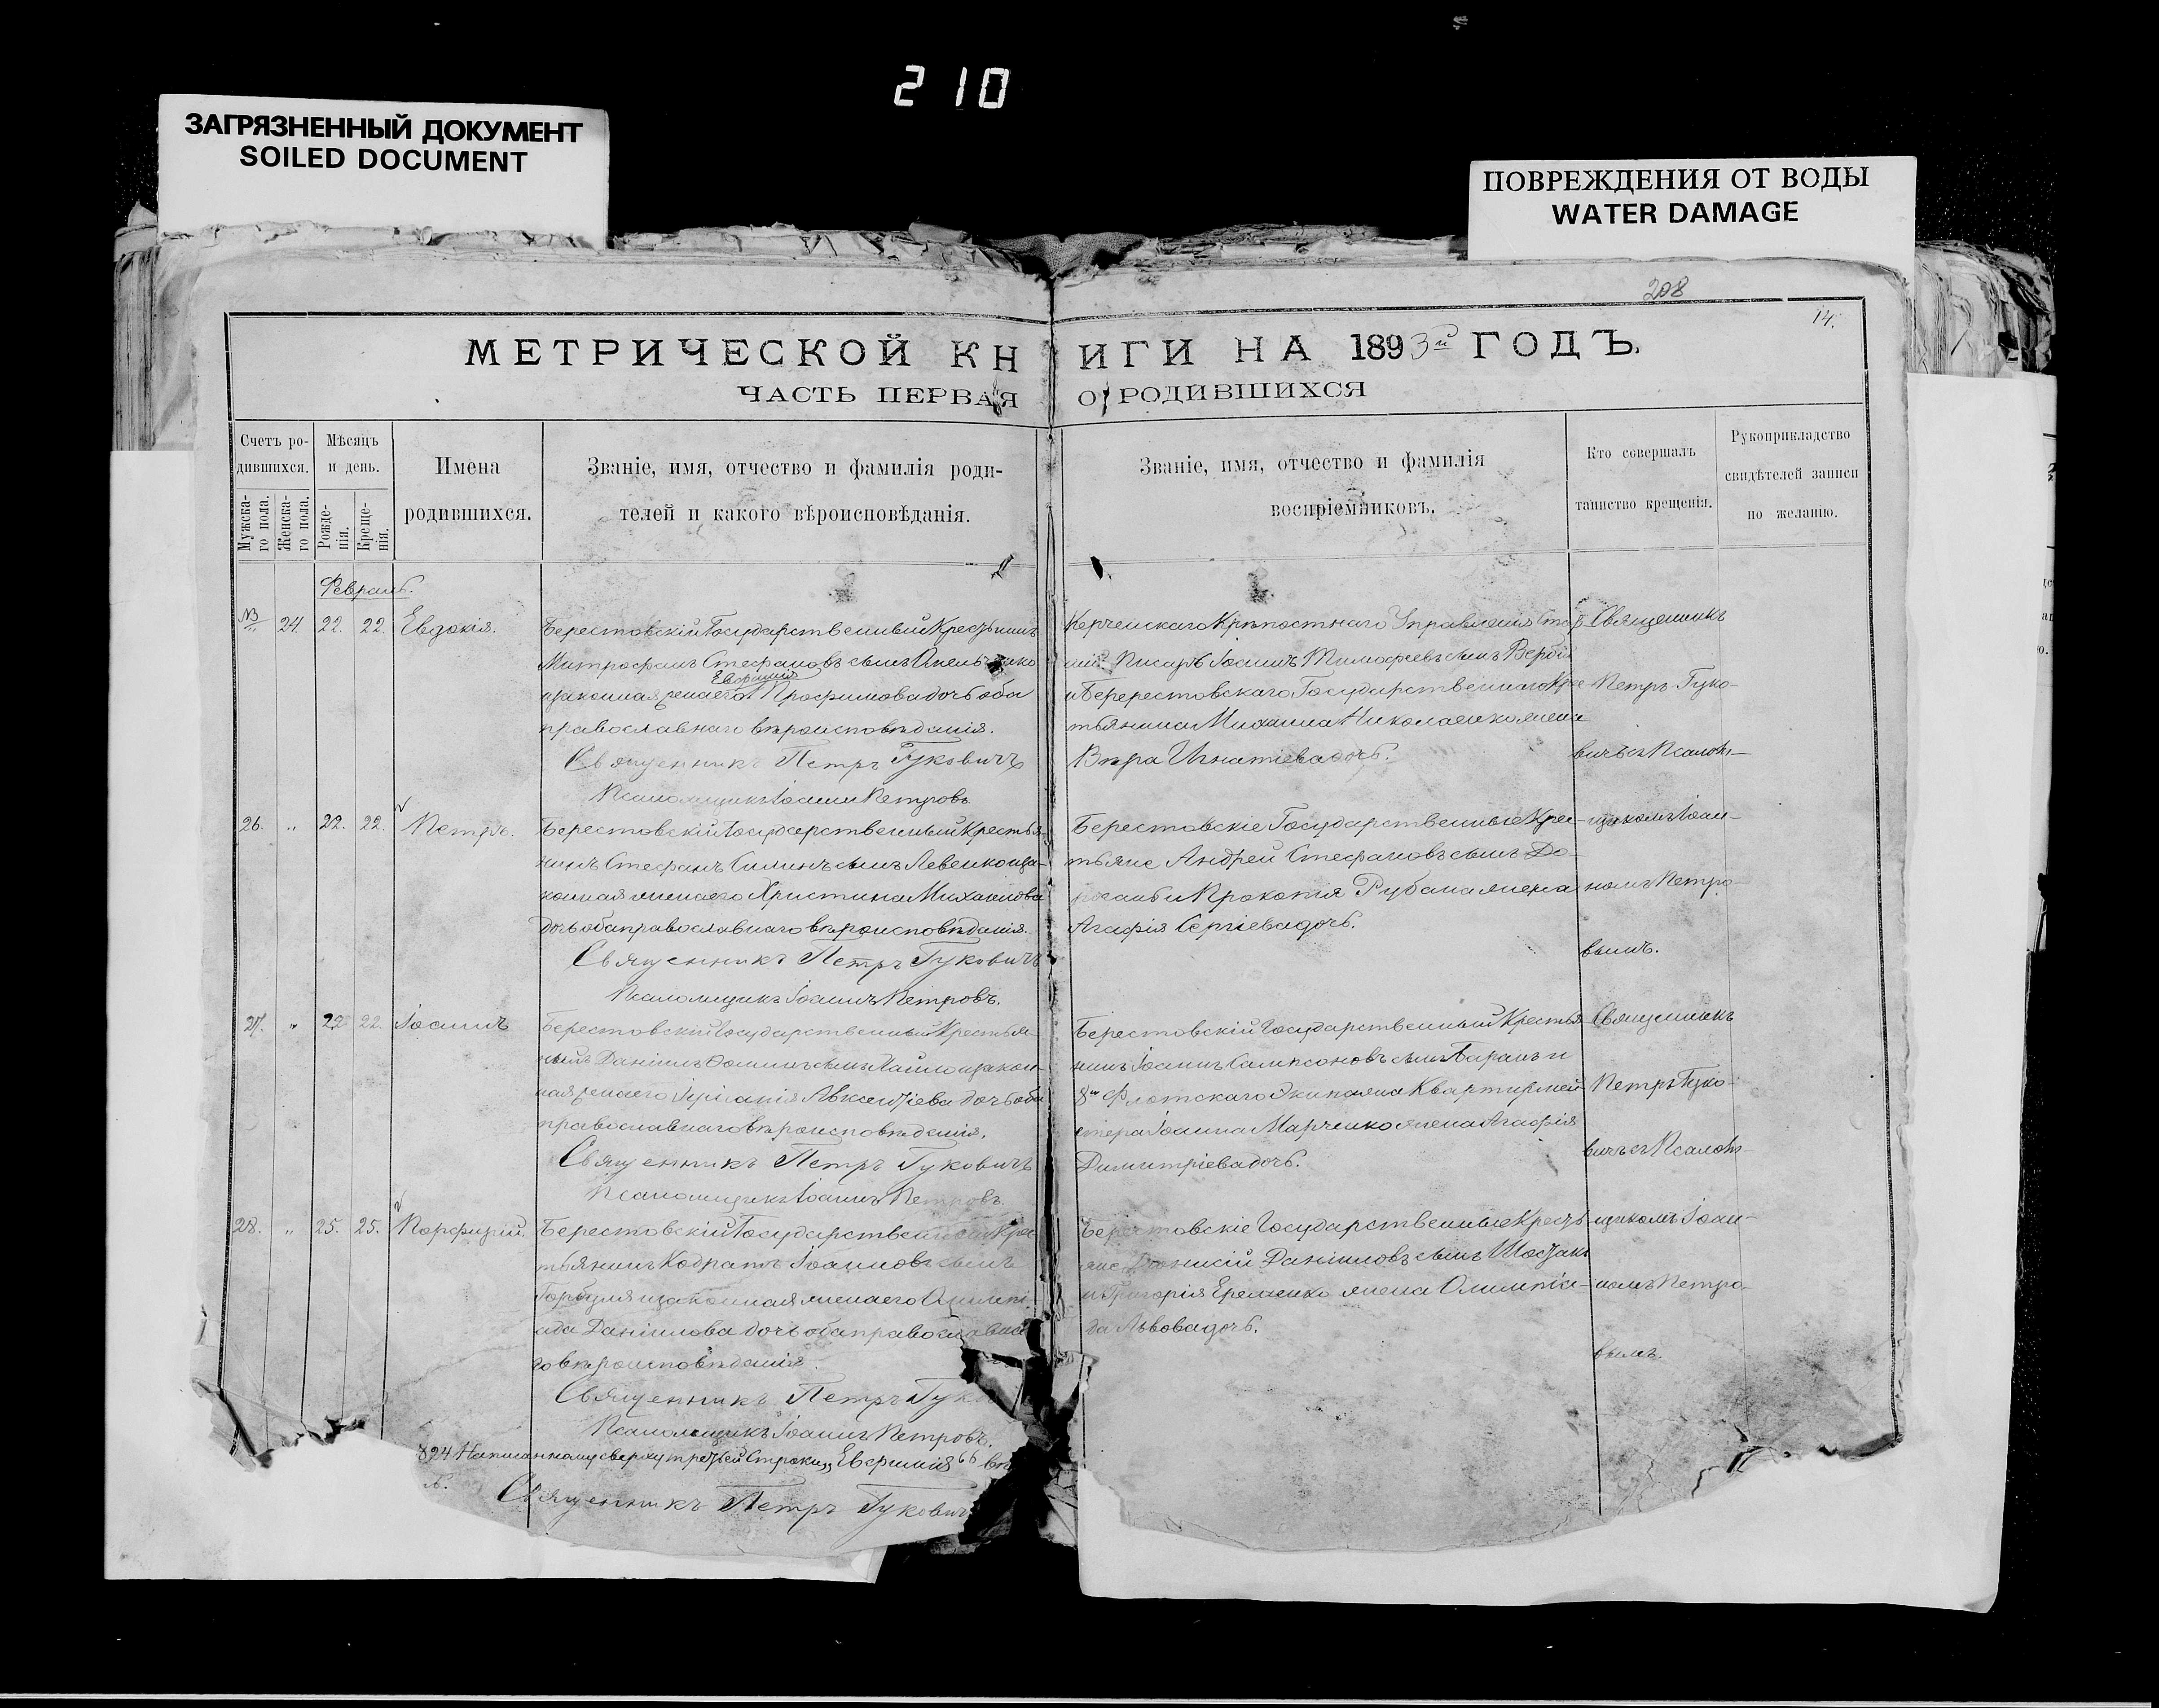 210
ЗАГРЯЗНЕННЫЙ ДОКУМЕНТ
SOILED DOCUMENT
ПОВРЕЖДЕНИЯ ОТ ВОДЫ
WATER DAMAGE
208
14.
МЕТРИЧЕСКОЙ КНИГИ НА 1893й ГОДЪ.
ЧАСТЬ ПЕРВАЯ О РОДИВШИХСЯ
Счетъ ро-
дившихся.
Мужска-
го пола.
Женска-
го пола.
Мѣсяцъ
и день.
Рожде-
нія.
Креще-
нія.
Имена
родившихся.
Званіе, имя, отчество и фамилія роди-
телей и какого вѣроисповѣданія.
Званіе, имя, отчество и фамилія
воспріемниковъ.
Кто совершалъ
таинство крещенія.
Рукоприкладство
свидѣтелей записи
по желанію.
Февраль.
24. 22. 22. Евдокія.
Берестовскій Государственный Крестьянинъ
Митрофанъ Стефановъ сынъ
Евфимія
и законная жена его Трофимова дочь оба
православнаго вѣроисповѣданія.
Священникъ Петръ Гуковичъ
Псаломщикъ Іоаннъ Петровъ
Керченскаго Крѣпостнаго Управленія
Писарь Іоаннъ Тимофеевъ сынъ
и Беререстовскаго Государственнаго Кре-
стьянина Михаила Николаенко жена
Вѣра Игнатіева дочь.
Священникъ
Петръ Гуко-
вичъ съ Псалом-
26. „ 22. 22. Петръ.
Берестовскій Государственный Крестья-
нинъ Стефанъ Силинъ сынъ Левенко и за-
конная жена его Христина Михаилова
дочь оба православнаго вѣроисповѣданія.
Священникъ Петръ Гуковичъ
Псаломщикъ Іоаннъ Петровъ.
Берестовскіе Государственные Крес-
тьяне Андрей Стефановъ сынъ До-
и Прокопія Рубана жена
Агафія Сергіева дочь.
щикомъ Іоан-
номъ Петро-
вымъ.
27. „ 22 22. Іоаннъ
Берестовскій Государственный Крестья-
нинъ Даніилъ сынъ и закон-
ная жена его Авксентіева дочь оба
православнаго вѣроисповѣданія.
Священникъ Петръ Гуковичъ
Псаломщикъ Іоаннъ Петровъ.
Берестовскій Государственный Крестья-
нинъ Іоаннъ Сампсоновъ сынъ Таранъ и
8го Флотскаго Экипажа Квартирмей-
стера Іоанна Марченко жена Агафія
Димитріева дочь.
Священникъ
Петръ Гуко-
вичъ съ Псалом-
28. „ 25. 25. Порфирій.
Берестовскій Государственный Крес-
тьянинъ Кодратъ Іоанновъ сынъ
и законная жена его Олимпі-
ада Даніилова дочь оба православна-
го вѣроисповѣданія.
Священникъ Петръ Гук
Псаломщикъ Іоаннъ Петровъ.
Берестовскіе Государственные Кресть-
яне Діонисій Даніиловъ сынъ
и Григорія Еременко жена Олимпіа-
да Львова дочь.
щикомъ Іоан-
номъ Петро-
вымъ.
Написанному сверху третьей строки „Евфимія“
Священникъ Петръ Гуковичъ